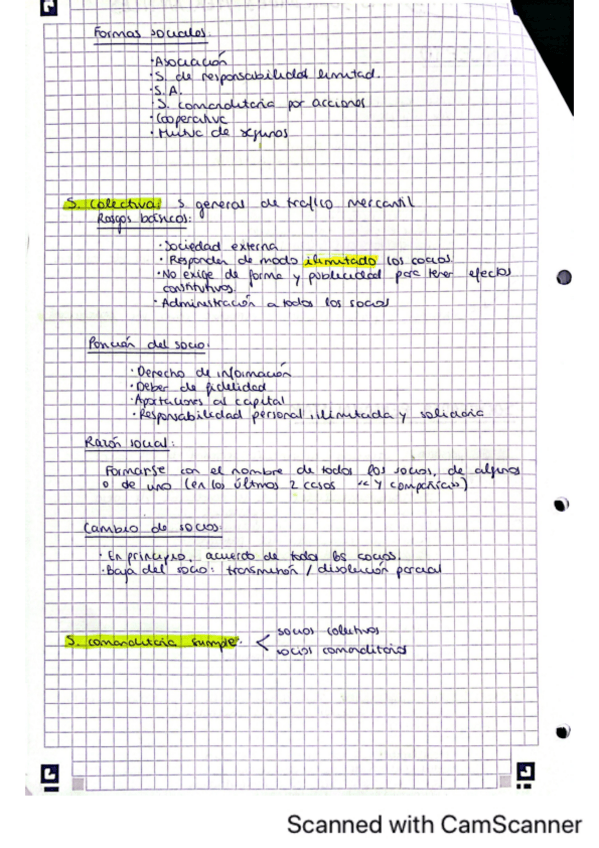 Formas sociales.
· Asociación
· S. de responsabilidad limitad.
· S.A.
· S. comanditaria por acciones
· Cooperativa
· Mutua de seguros
S. Colectiva: s general de trafico mercantil
Rasgos básicos:
· Sociedad externa
· Responden de modo ilimitado los socios.
· No exige de forma y publicidad para tener efectos
constitutivos.
· Administración a todos los socios
Posición del socio:
· Derecho de información
· Deber de fidelidad
· Aportaciones al capital
· Responsabilidad personal, ilimitada y solidaria
Razón social:
Formarse con el nombre de todos los socios, de algunos
o de uno (en los últimos 2 casos "y compañía")
Cambio de socios:
· En principio, acuerdo de todos los socios.
· Baja del socio: transmisión / disolución parcial
S. comanditaria simple: < socios colectivos
socios comanditarios
Scanned with CamScanner